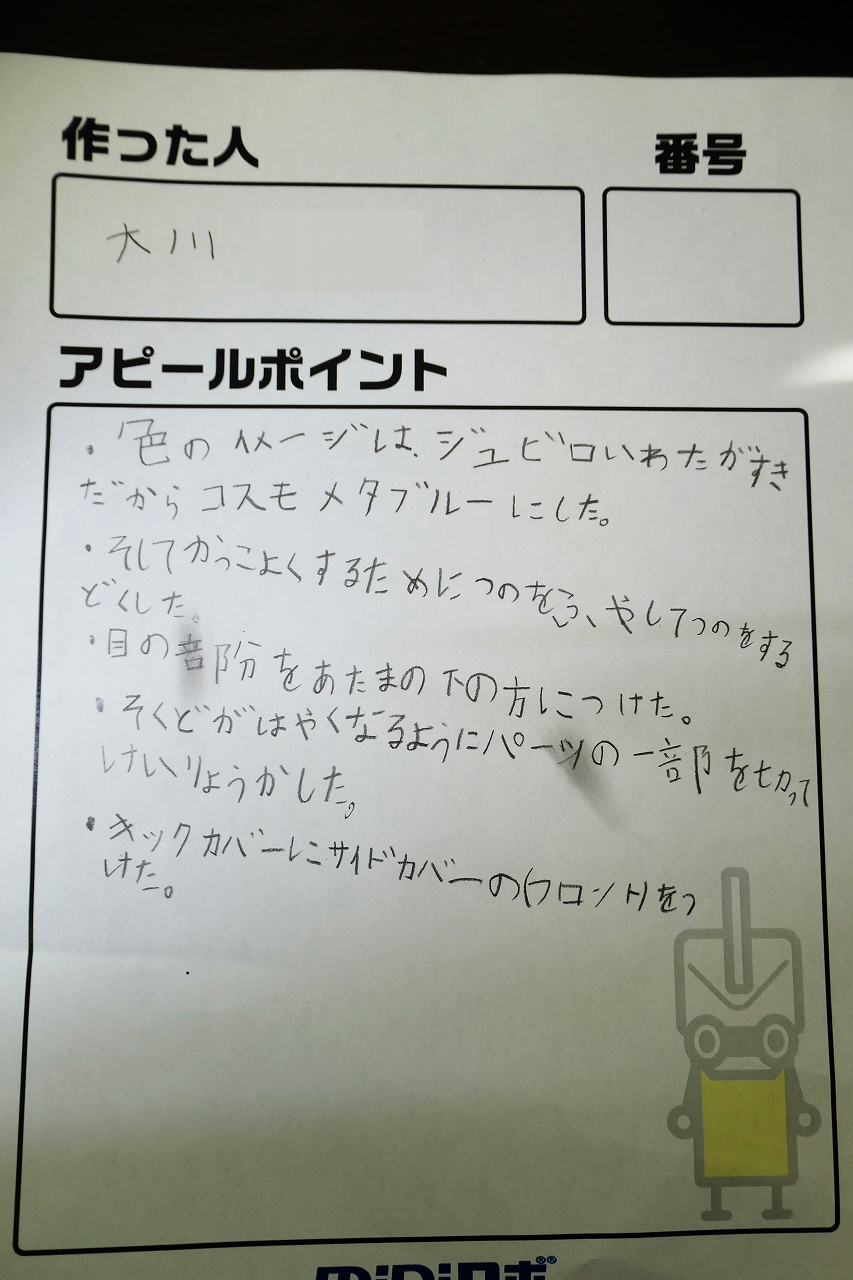 作った人
番号
大川
アピールポイント
・色のイメージは、ジュビロいわたがすき
だからコスモメタブルーにした。
・そしてかっこよくするためにつのをふやしてつのをする
どくした。
・目の部分をあたまの下の方につけた。
・そくどがはやくなるようにパーツの一部を切って
けいりょうかした。
・キックカバーにサイドカバーの(フロント)をつ
けた。